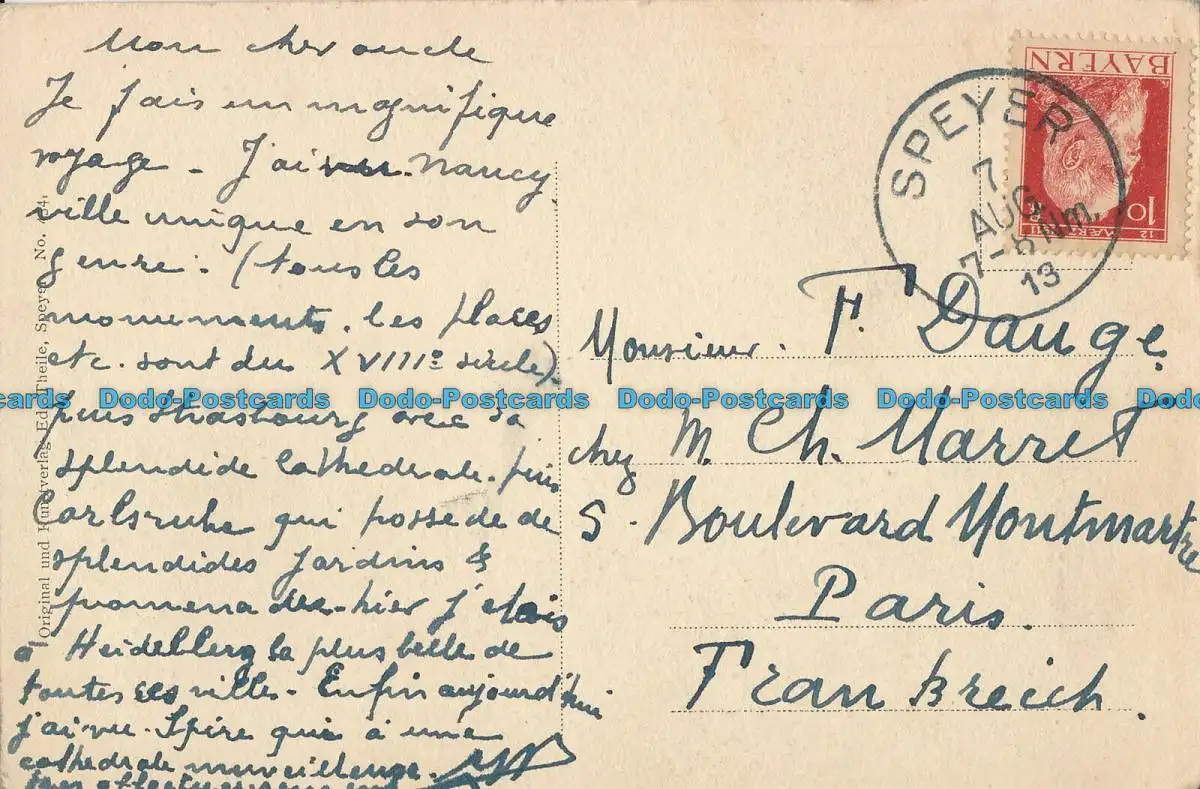 Mon cher oncle
Je fais un magnifique
voyage - J'ai vu Nancy
ville unique en son
genre. (tous les
monuments. les places
etc. sont du XVIIIe siècle)
puis Strasbourg avec sa
splendide cathedrale. puis
Carlsruhe qui possede de
splendides jardins &
promenades - hier j'etais
à Heidelberg la plus belle de
toutes ces villes - Enfin aujourd'hui
j'ai vu Spire qui à une
cathedrale merveilleuse.
Original und Kunstverlag Ed. Theile, Speyer No.
BAYERN
10
SPEYER
7
AUG.
7-8 Nm.
13
Monsieur. F. Dauge.
chez M. Ch. Marret
5. Boulevard Montmartre
Paris.
Frankreich.
Dodo-Postcards Dodo-Postcards Dodo-Postcards Dodo-Postcards